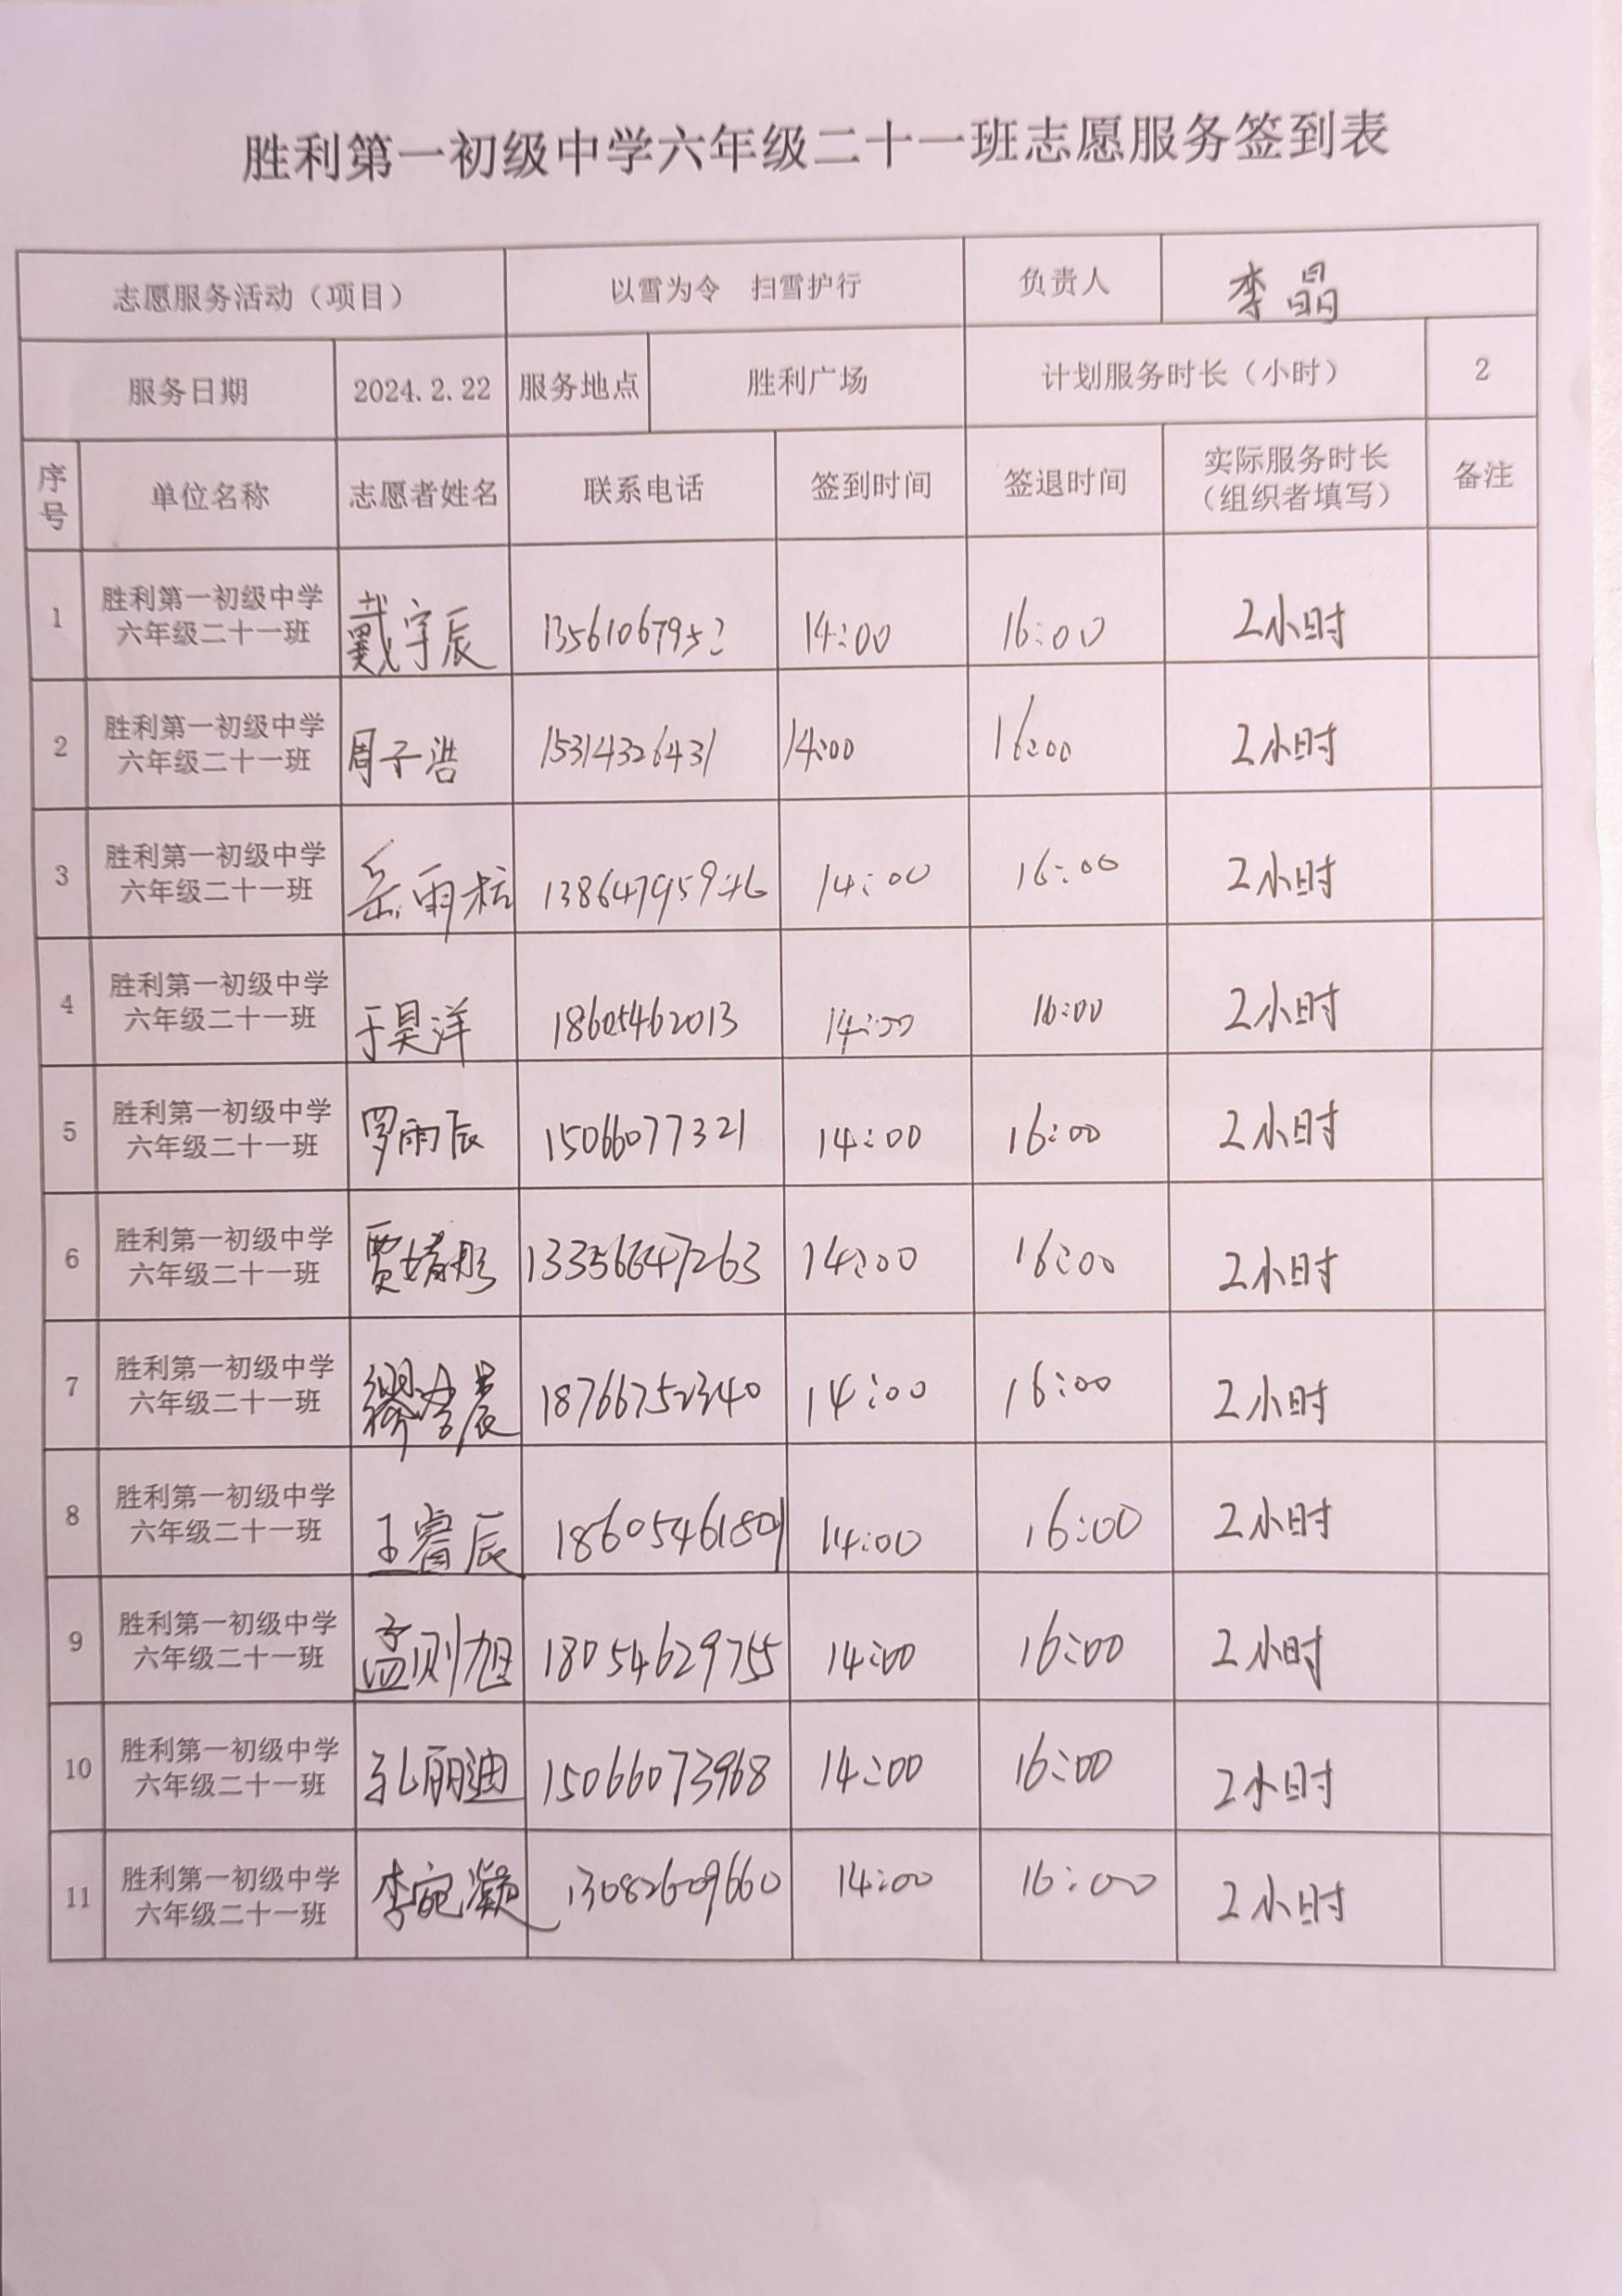 胜利第一初级中学六年级二十一班志愿服务签到表
志愿服务活动（项目） 以雪为令 扫雪护行 负责人 李晶
服务日期 2024.2.22 服务地点 胜利广场 计划服务时长（小时） 2
序号 单位名称 志愿者姓名 联系电话 签到时间 签退时间 实际服务时长（组织者填写） 备注
1 胜利第一初级中学六年级二十一班 戴宇辰 13561067952 14:00 16:00 2小时
2 胜利第一初级中学六年级二十一班 周子浩 15314326431 14:00 16:00 2小时
3 胜利第一初级中学六年级二十一班 岳雨 13864795946 14:00 16:00 2小时
4 胜利第一初级中学六年级二十一班 于昊洋 18605462013 14:00 16:00 2小时
5 胜利第一初级中学六年级二十一班 罗雨辰 15066077321 14:00 16:00 2小时
6 胜利第一初级中学六年级二十一班 贾婧彤 13356647263 14:00 16:00 2小时
7 胜利第一初级中学六年级二十一班 缪 18766752340 14:00 16:00 2小时
8 胜利第一初级中学六年级二十一班 王睿辰 18605461801 14:00 16:00 2小时
9 胜利第一初级中学六年级二十一班 孟则旭 18054629755 14:00 16:00 2小时
10 胜利第一初级中学六年级二十一班 孔丽迪 15066073968 14:00 16:00 2小时
11 胜利第一初级中学六年级二十一班 李宛凝 13082609660 14:00 16:00 2小时